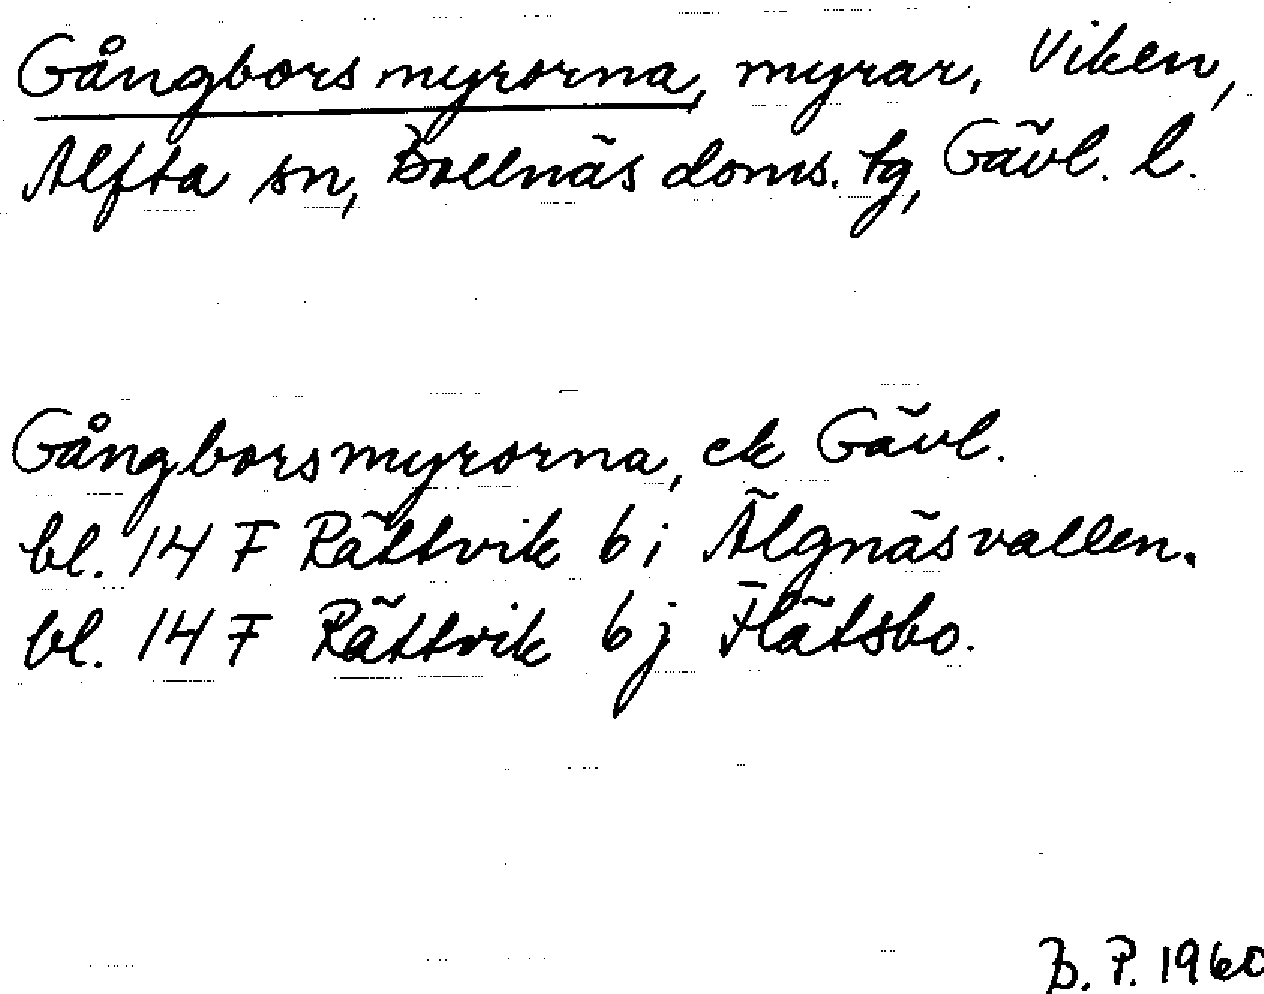 Gångborsmyrorna, myrar, Viken,
Alfta sn, Bollnäs doms. tg, Gävl. l.
Gångborsmyrorna, ek Gävl.
bl. 14 F Rättvik 6 i Älgnäsvallen.
bl. 14 F Rättvik 6 j Flätsbo.
B. P. 1960